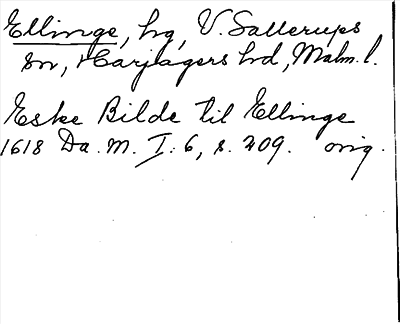 Ellinge, hg, V. Sallerups
sn, Harjagers hd, Malm. l.
Eske Bilde til Ellinge
1618 Da. M. I: 6, s. 209. orig.